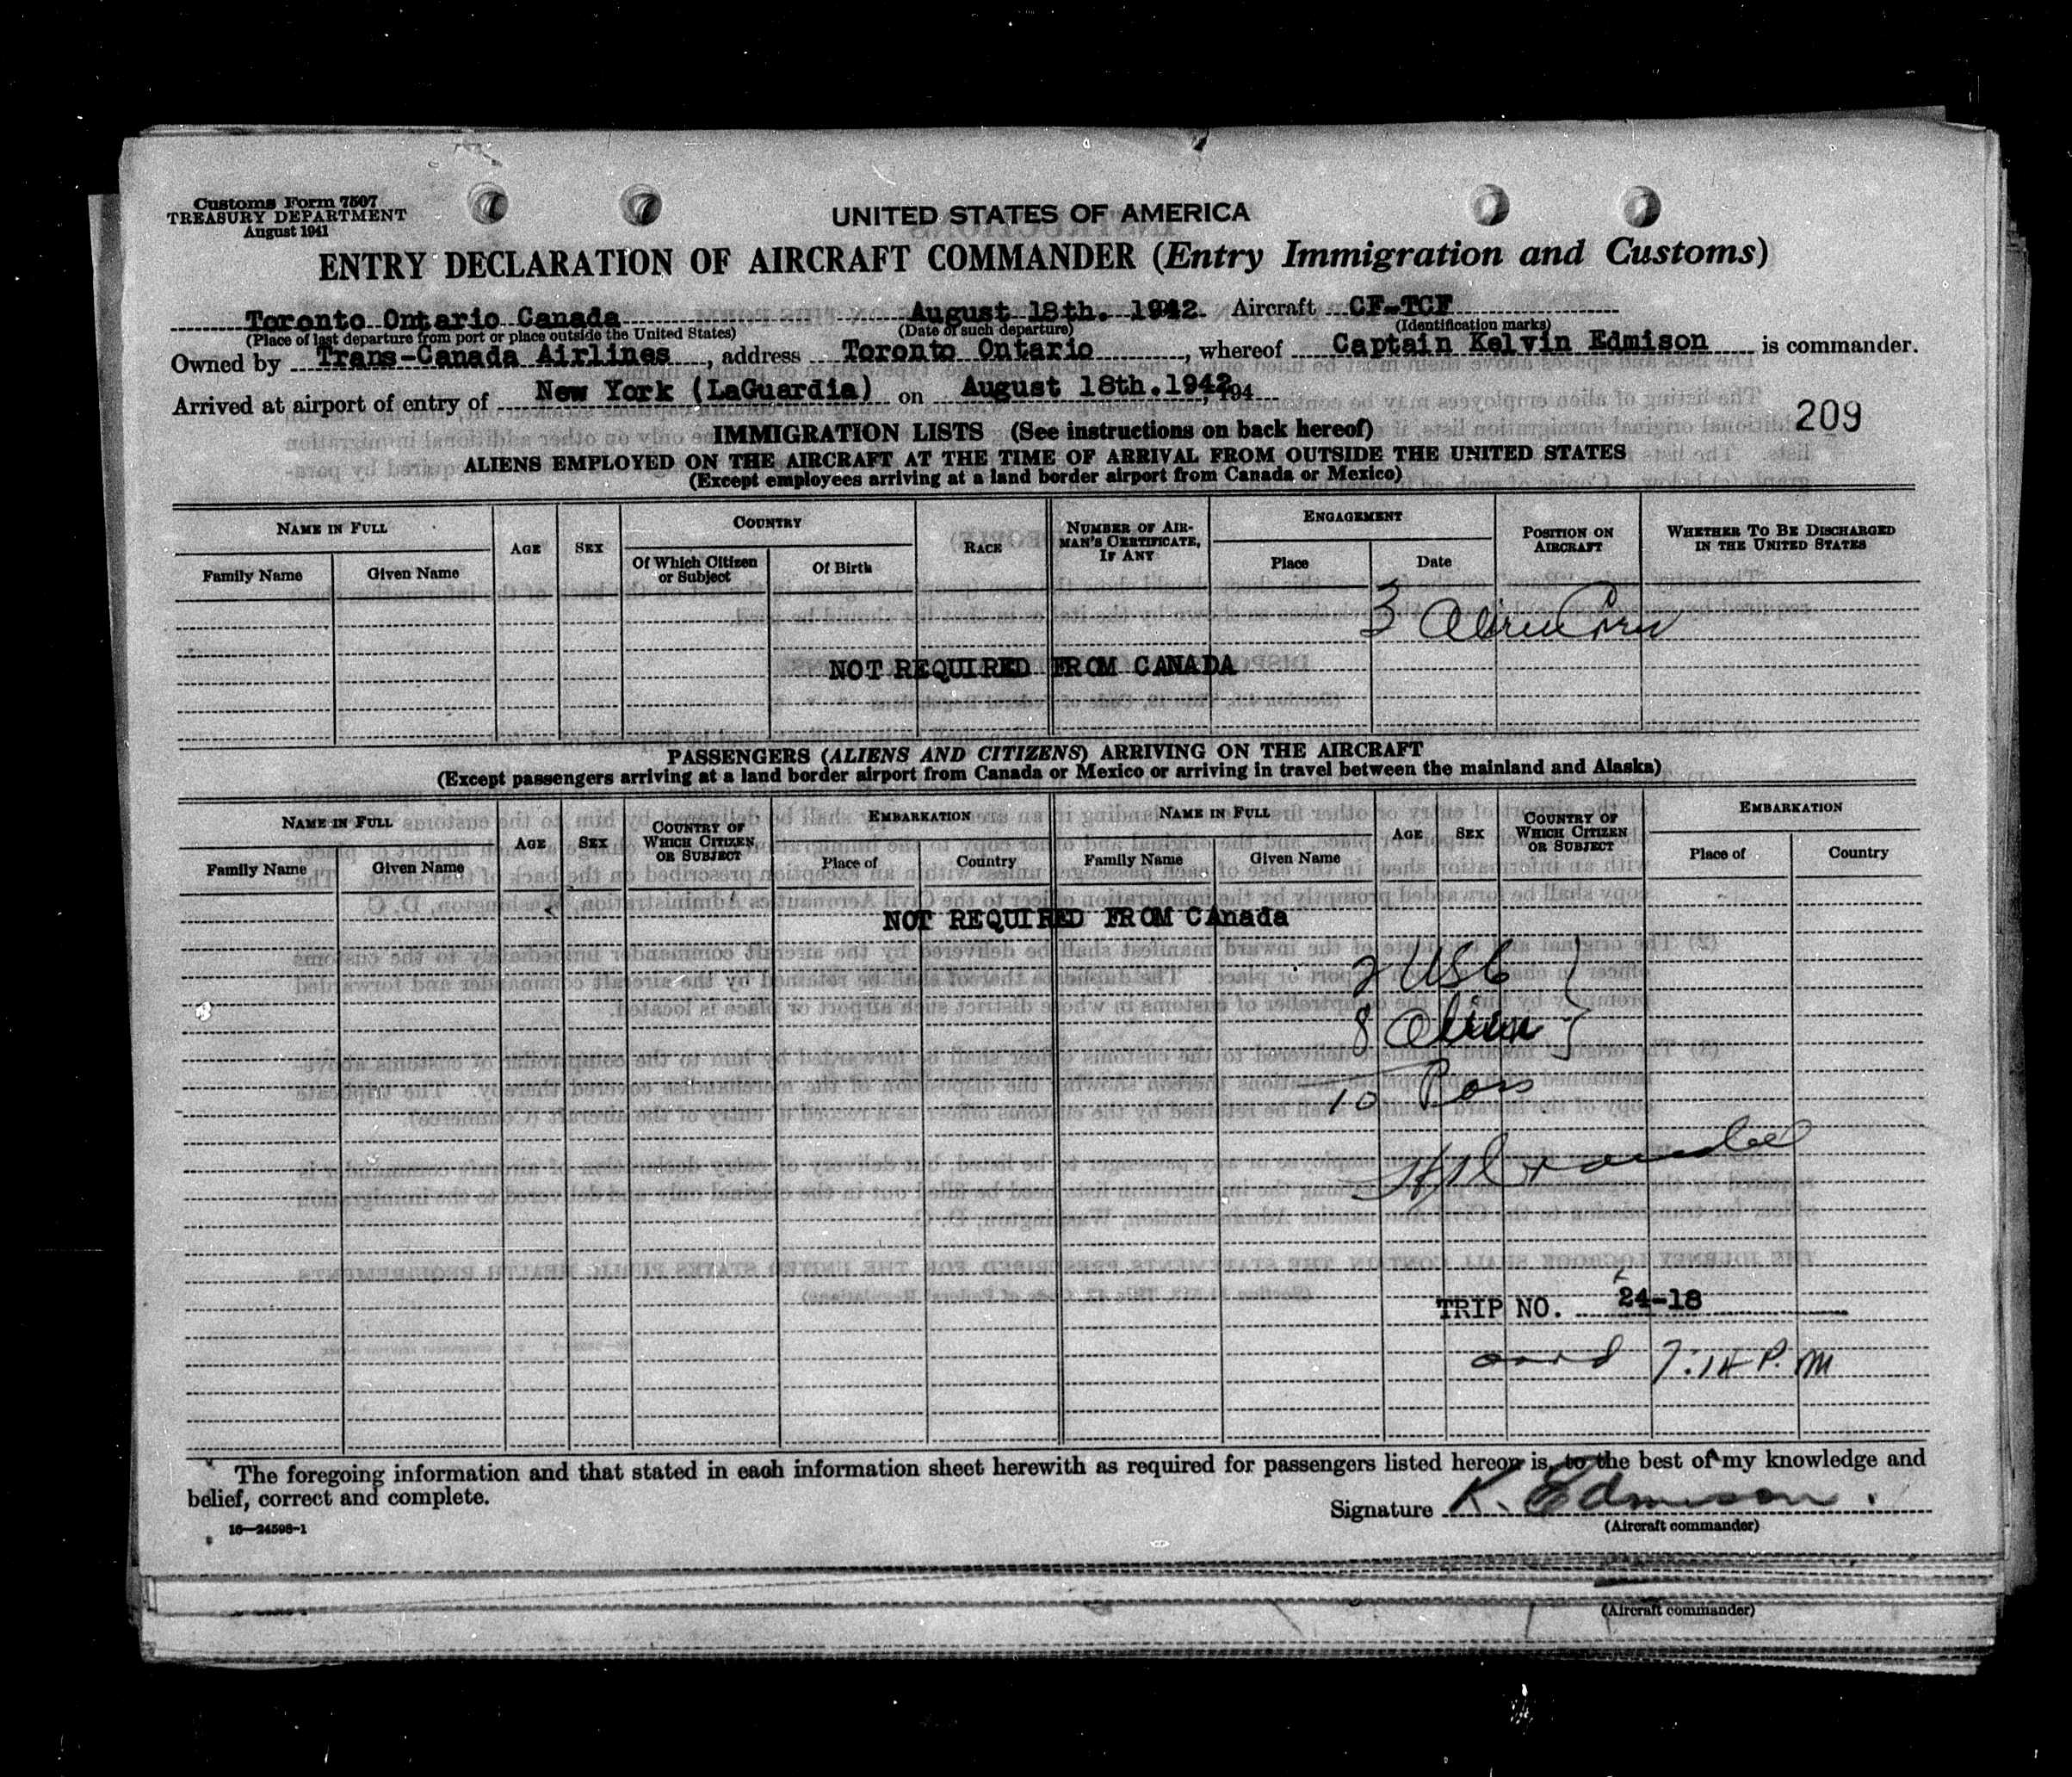 Customs Form 7507
TREASURY DEPARTMENT
August 1941
UNITED STATES OF AMERICA
ENTRY DECLARATION OF AIRCRAFT COMMANDER (Entry Immigration and Customs)
Toronto Ontario Canada August 18th. 1942 Aircraft CF-TCF
(Place of last departure from port or place outside the United States) (Date of such departure) (Identification marks)
Owned by Trans-Canada Airlines, address Toronto Ontario, whereof Captain Kelvin Edmison is commander.
Arrived at airport of entry of New York (LaGuardia) on August 18th.1942, 194
209
IMMIGRATION LISTS (See instructions on back hereof)
ALIENS EMPLOYED ON THE AIRCRAFT AT THE TIME OF ARRIVAL FROM OUTSIDE THE UNITED STATES
(Except employees arriving at a land border airport from Canada or Mexico)
NAME IN FULL AGE SEX COUNTRY RACE NUMBER OF AIRMAN'S CERTIFICATE, IF ANY ENGAGEMENT POSITION ON AIRCRAFT WHETHER TO BE DISCHARGED IN THE UNITED STATES
Family Name Given Name Of Which Citizen or Subject Of Birth Place Date
3 Alien Crew
NOT REQUIRED FROM CANADA
PASSENGERS (ALIENS AND CITIZENS) ARRIVING ON THE AIRCRAFT
(Except passengers arriving at a land border airport from Canada or Mexico or arriving in travel between the mainland and Alaska)
NAME IN FULL AGE SEX COUNTRY OF WHICH CITIZEN OR SUBJECT EMBARKATION NAME IN FULL AGE SEX COUNTRY OF WHICH CITIZEN OR SUBJECT EMBARKATION
Family Name Given Name Place of Country Family Name Given Name Place of Country
NOT REQUIRED FROM CAnada
2 USC
8 Alien
10 Pass
TRIP NO. 24-18
7:14 P.M
The foregoing information and that stated in each information sheet herewith as required for passengers listed hereon is, to the best of my knowledge and
belief, correct and complete.
Signature K. Edmison.
(Aircraft commander)
16—24598-1
(Aircraft commander)